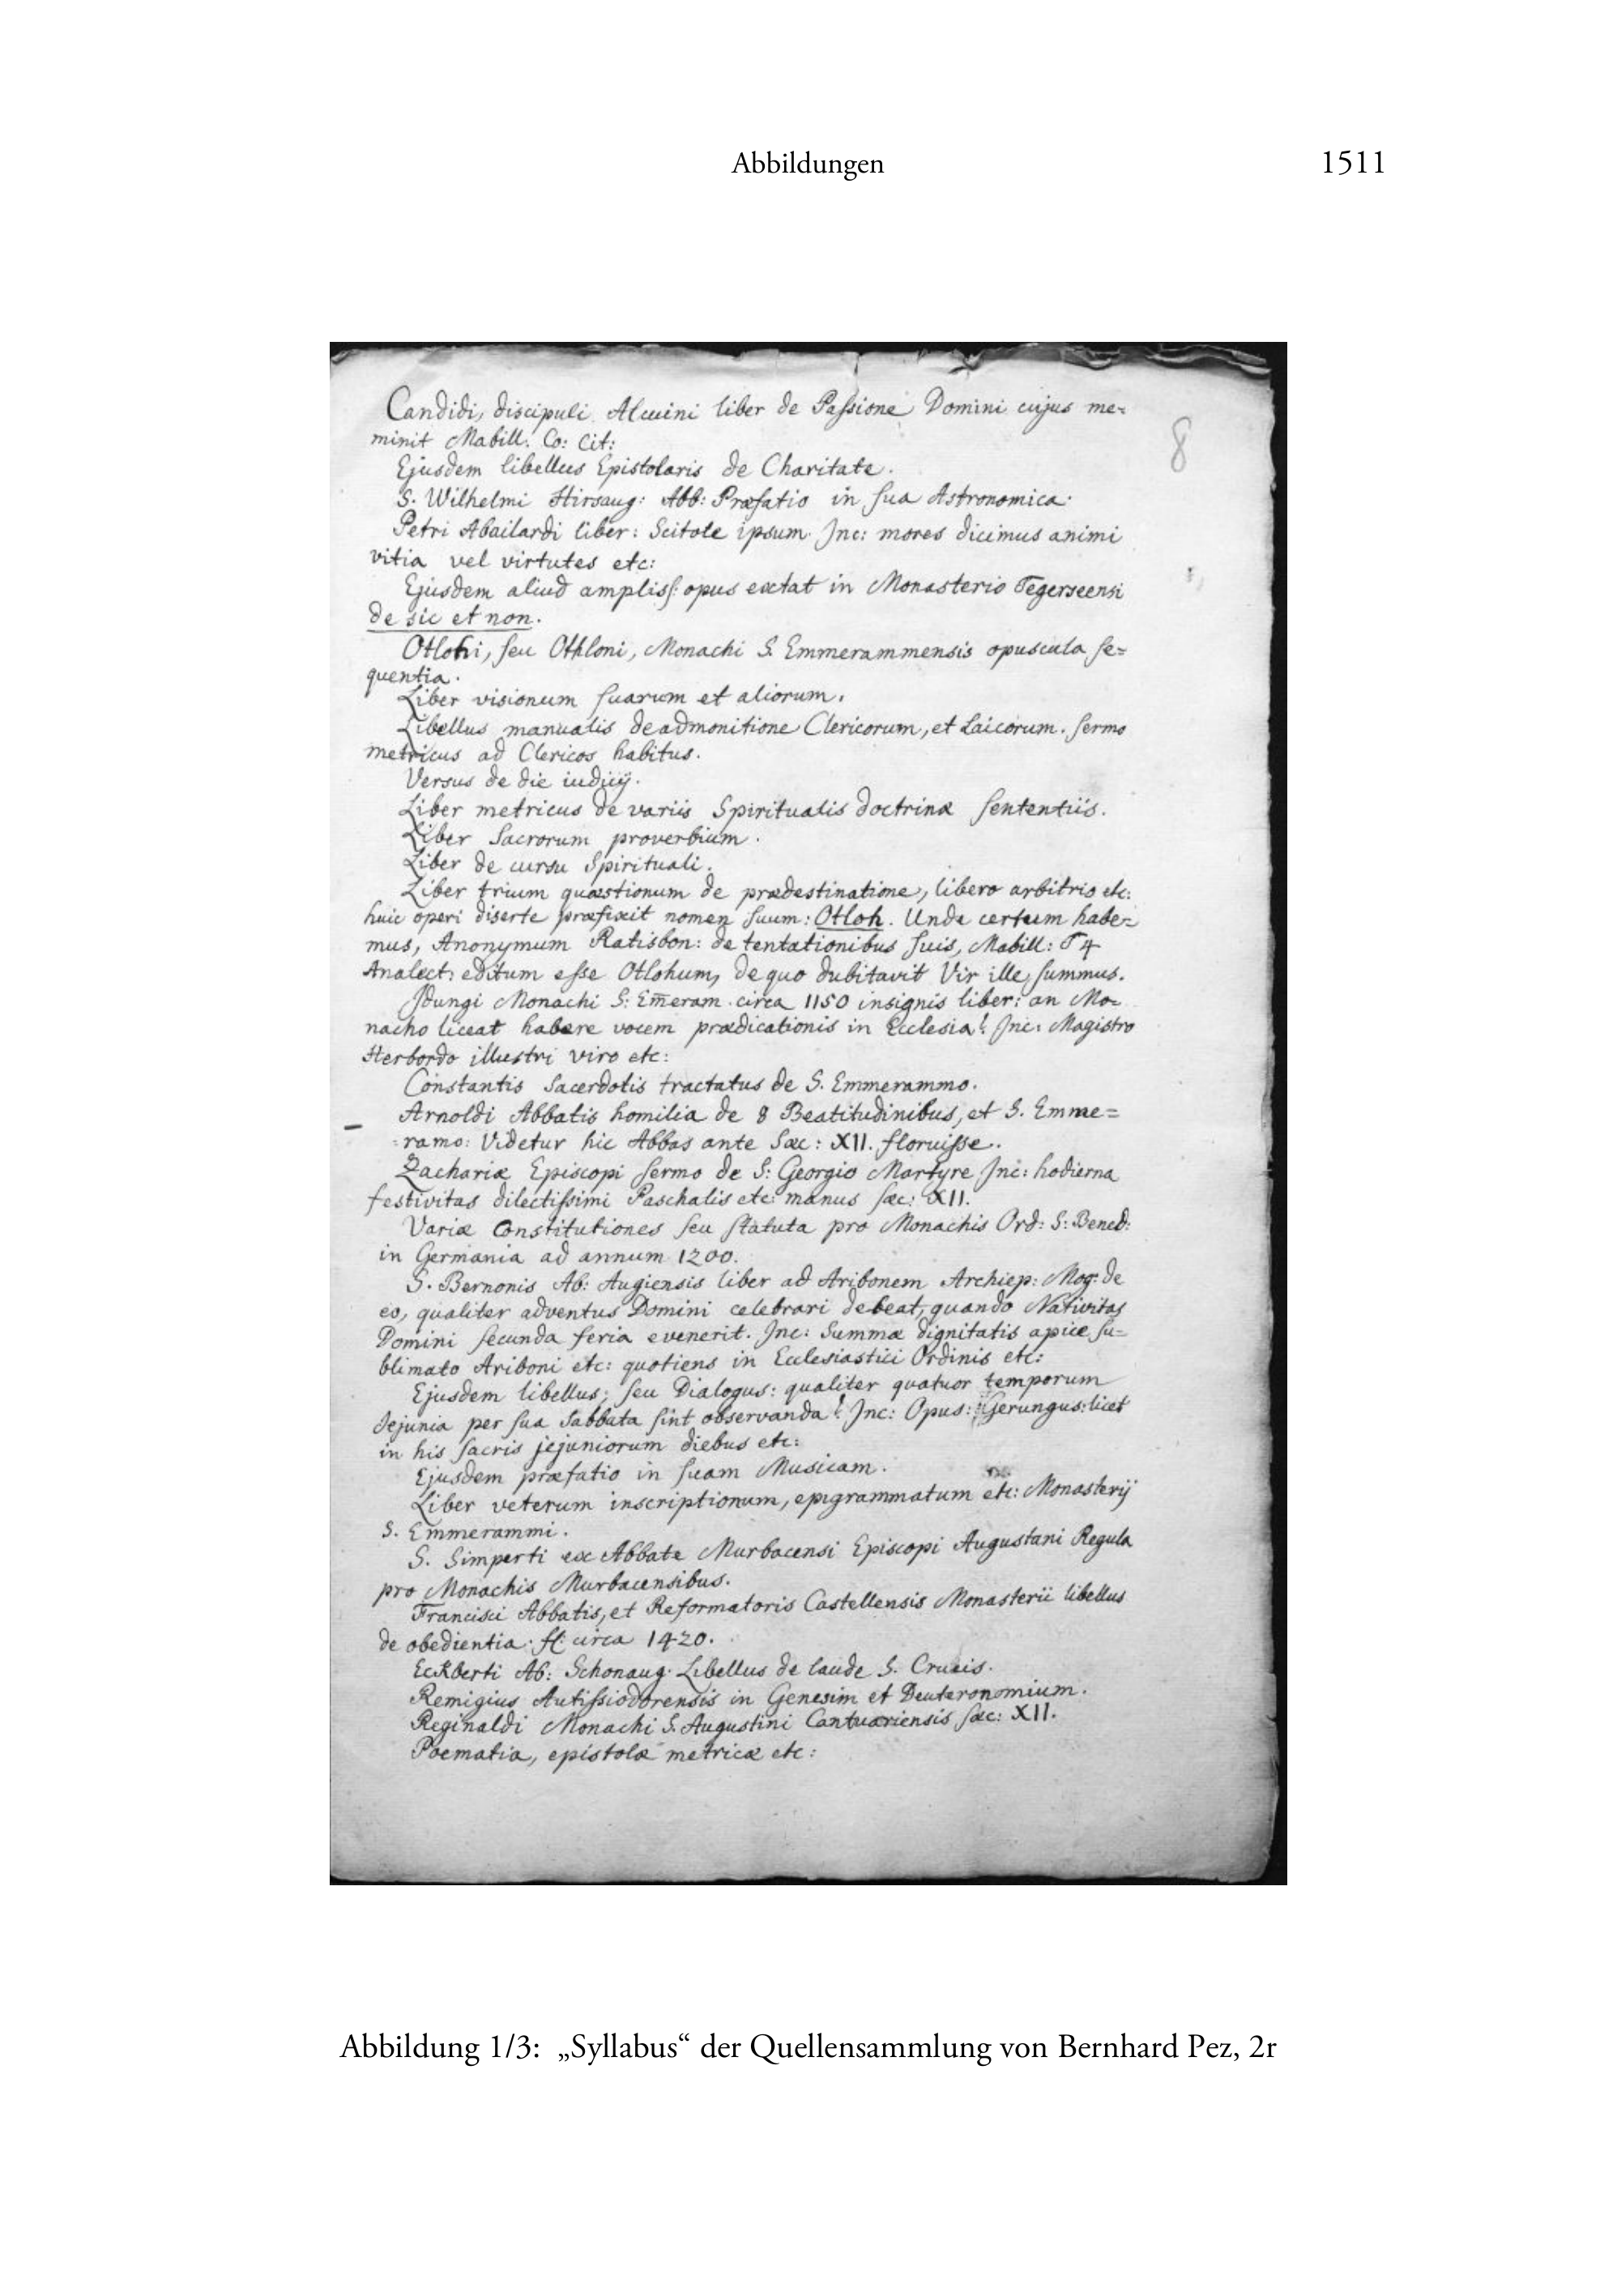 Abbildungen 1511
Candidi, discipuli Alcuini liber de Passione Domini cujus me-
minit Mabill. Co: Cit:
Ejusdem libellus Epistolaris de Charitate.
S. Wilhelmi Hirsaug: Abb: Præfatio in sua Astronomica.
Petri Abailardi liber: Scitote ipsum. Inc: mores dicimus animi
vitia vel virtutes etc:
Ejusdem aliud ampliss: opus extat in Monasterio Tegerseensi
de sic et non.
Otlohi, seu Othloni, Monachi S. Emmerammensis opuscula se=
quentia.
Liber visionum suarum et aliorum.
Libellus manualis de admonitione Clericorum, et Laicorum. sermo
metricus ad Clericos habitus.
Versus de die iudiij.
Liber metricus de variis Spiritualis doctrinæ sententiis.
Liber Sacrorum proverbium.
Liber de cursu Spirituali.
Liber trium quæstionum de prædestinatione, libero arbitrio etc:
huic operi diserte præfixit nomen suum: Otloh. Unde certum habe-
mus, Anonymum Ratisbon: de tentationibus suis, Mabill: T 4
Analect: editum esse Otlohum, de quo dubitavit Vir ille summus.
Idungi Monachi S: Em̄eram. circa 1150 insignis liber: an Mo-
nacho liceat habere vocem prædicationis in Ecclesia? Inc: Magistro
Herbordo illustri viro etc:
Constantis Sacerdotis tractatus de S. Emmerammo.
Arnoldi Abbatis homilia de 8 Beatitudinibus, et S. Emme=
ramo: Videtur hic Abbas ante Sæc: XII. floruisse.
Zachariæ Episcopi sermo de S: Georgio Martyre Inc: hodierna
festivitas dilectissimi Paschalis etc: manus sæc: XII.
Variæ Constitutiones seu statuta pro Monachis Ord: S: Bened:
in Germania ad annum 1200.
S. Bernonis Ab: Augiensis liber ad Aribonem Archiep: Mog: de
eo, qualiter adventus Domini celebrari debeat, quando Nativitas
Domini secunda feria evenerit. Inc: Summæ dignitatis apice su=
blimato Ariboni etc: quotiens in Ecclesiastici Ordinis etc:
Ejusdem libellus; seu Dialogus: qualiter quatuor temporum
Jejunia per sua Sabbata sint observanda? Inc: Opus: Gerungus: licet
in his sacris jejuniorum diebus etc:
Ejusdem præfatio in suam Musicam.
Liber veterum inscriptionum, epigrammatum etc: Monasterij
S. Emmerammi.
S. Simperti ex Abbate Murbacensi Episcopi Augustani Regula
pro Monachis Murbacensibus.
Francisci Abbatis, et Reformatoris Castellensis Monasterii libellus
de obedientia. fl: circa 1420.
Eckberti Ab: Schonaug. Libellus de laude S. Crucis.
Remigius Autissiodorensis in Genesim et Deuteronomium.
Reginaldi Monachi S. Augustini Cantuariensis sæc: XII.
Poematia, epistolæ metricæ etc:
8
Abbildung 1/3: „Syllabus“ der Quellensammlung von Bernhard Pez, 2r